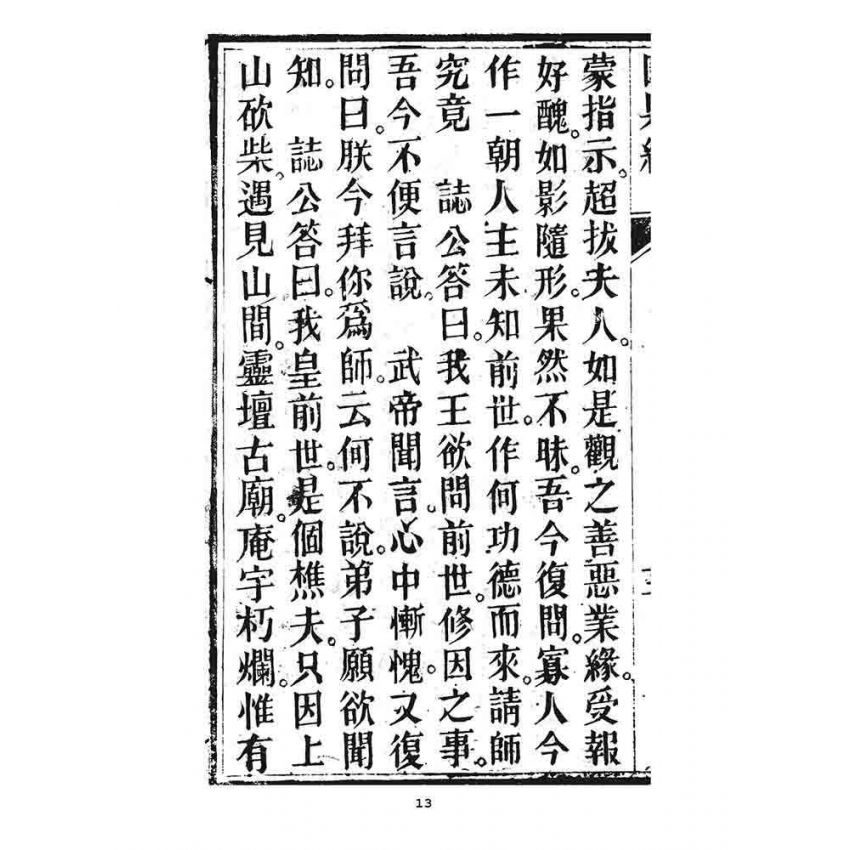 蒙指示。超拔夫人。如是觀之善惡業緣。受報
好醜。如影隨形。果然不昧。吾今復問。寡人今
作一朝人主未知前世。作何功德而來。請師
究竟　誌公答曰。我王欲問前世。修因之事。
吾今不便言說。　武帝聞言。心中慚愧。又復
問曰。朕今拜你為師。云何不說。弟子願欲聞
知。　誌公答曰。我皇前世。是個樵夫。只因上
山砍柴。遇見山間。靈壇古廟。庵宇朽爛。惟有
13